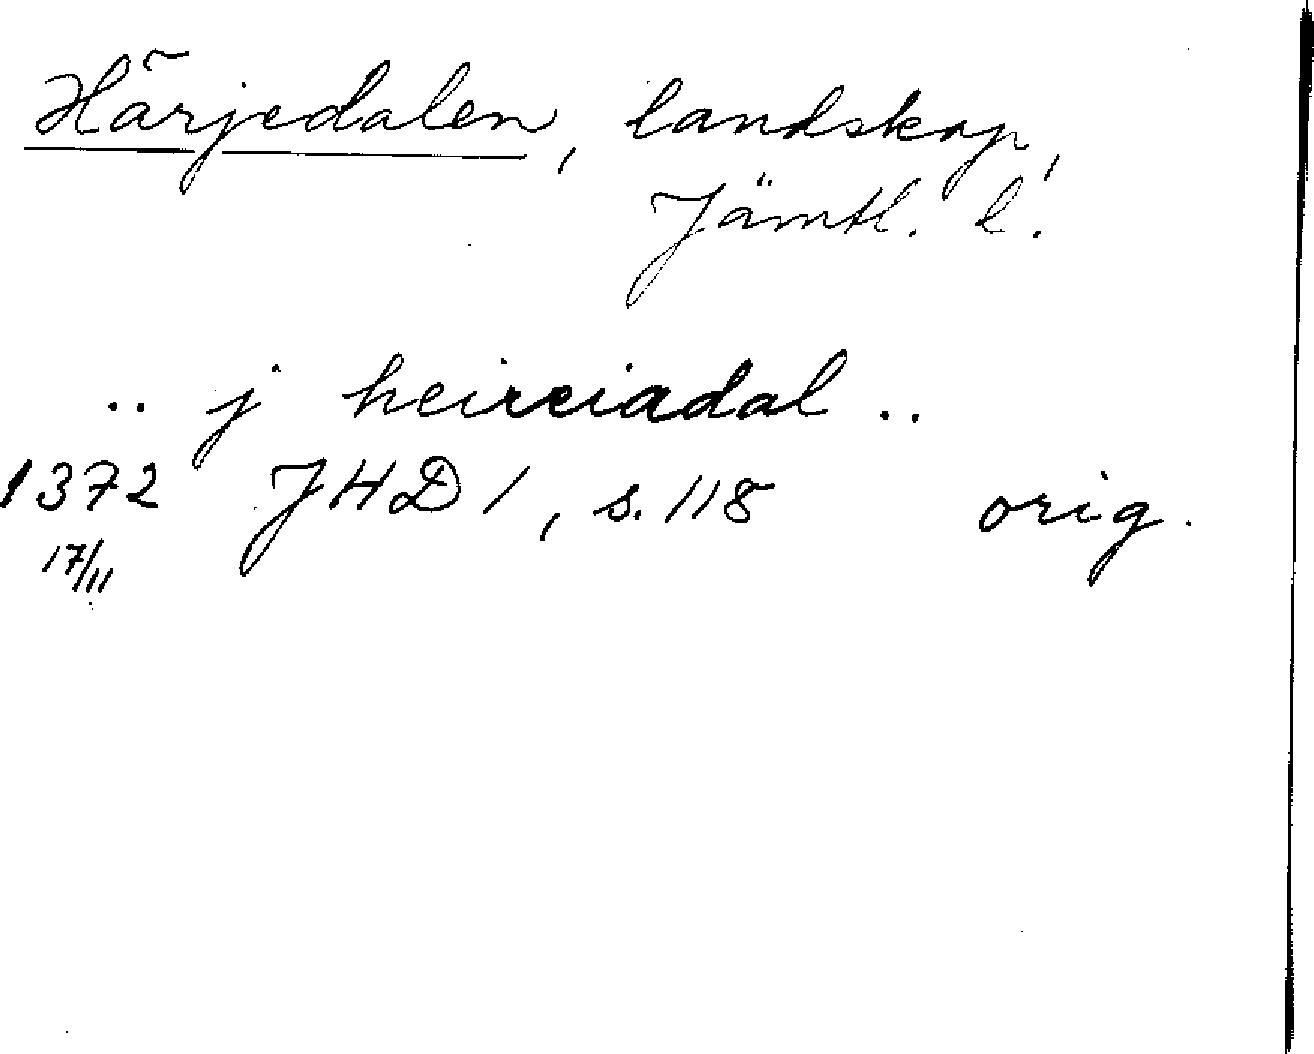 Härjedalen, landskap,
Jämtl. l.
.. j heireiadal ..
1372 JHD 1, s. 118 orig.
17/11